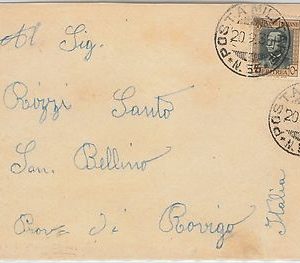 Al Sig.
Rozzi Santo
San. Bellino
Prov. di Rovigo
Italia
POSTA MILI
20
N° 35
POSTA
20